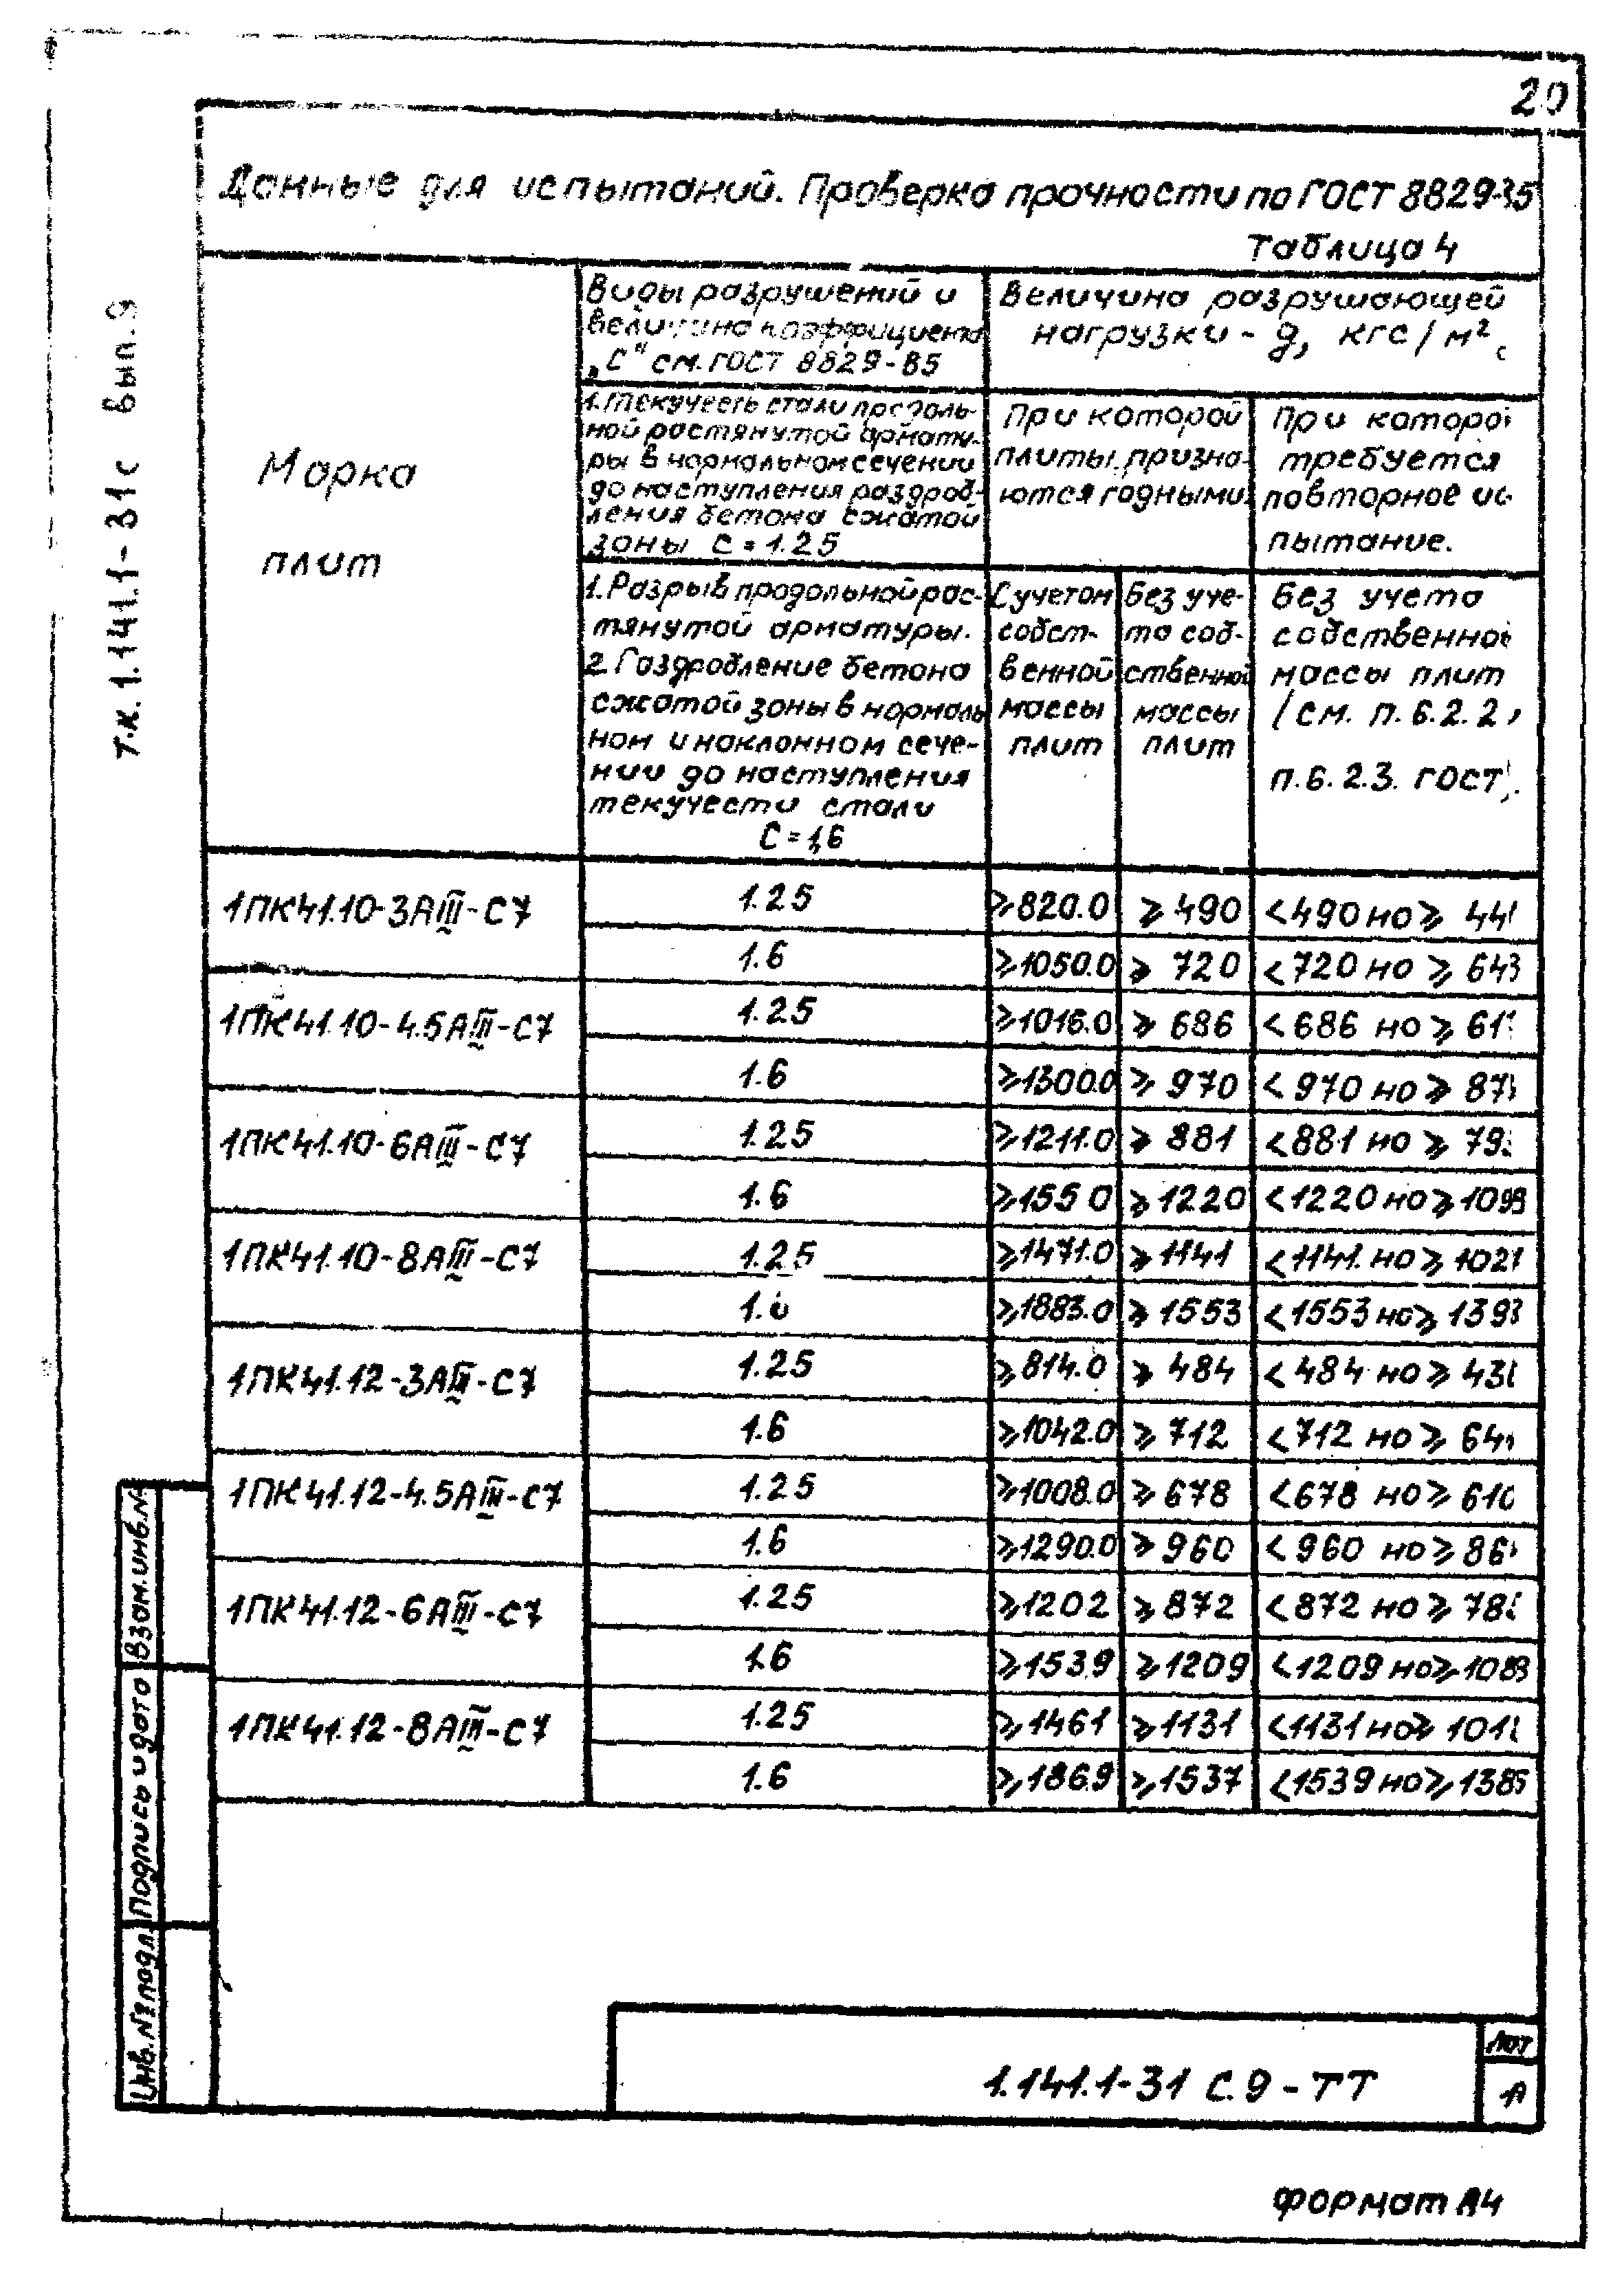 20
Данные для испытаний. Проверка прочности по ГОСТ 8829-85
Таблица 4
т.к. 1.141.1-31с вып. 9
Марка
плит
Виды разрушений и
величина коэффициента
„С" см. ГОСТ 8829-85
Величина разрушающей
нагрузки - q, кгс/м²
1. Текучесть стали продоль-
ной растянутой армату-
ры в нормальном сечении
до наступления раздроб-
ления бетона сжатой
зоны С = 1.25
При которой
плиты призна-
ются годными.
При которой
требуется
повторное ис-
пытание.
1. Разрыв продольной рас-
тянутой арматуры.
2. Раздробление бетона
сжатой зоны в нормаль
ном и наклонном сече-
нии до наступления
текучести стали
С = 1,6
С учетом
собст-
венной
массы
плит
Без уче-
та соб-
ственной
массы
плит
Без учета
собственной
массы плит
/см. п. 6.2.2,
п. 6.2.3. ГОСТ/.
1ПК41.10-3АIII-С7 1.25 ⩾820.0 ⩾490 <490 но⩾
1.6 ⩾1050.0 ⩾720 <720 но ⩾ 648
1ПК41.10-4.5АIII-С7 1.25 ⩾1016.0 ⩾686 <686 но⩾
1.6 ⩾1300.0 ⩾970 <970 но⩾
1ПК41.10-6АIII-С7 1.25 ⩾1211.0 ⩾881 <881 но ⩾
1.6 ⩾1550 ⩾1220 <1220 но⩾1098
1ПК41.10-8АIII-С7 1.25 ⩾1471.0 ⩾1141 <1141. но⩾
1.6 ⩾1883.0 ⩾1553 <1553 но⩾
1ПК41.12-3АIII-С7 1.25 ⩾814.0 ⩾484 <484 но⩾
1.6 ⩾1042.0 ⩾712 <712 но⩾
1ПК41.12-4.5АIII-С7 1.25 ⩾1008.0 ⩾678 <678 но⩾610
1.6 ⩾1290.0 ⩾960 <960 но⩾
1ПК41.12-6АIII-С7 1.25 ⩾1202 ⩾872 <872 но⩾
1.6 ⩾1539 ⩾1209 <1209 но⩾1088
1ПК41.12-8АIII-С7 1.25 ⩾1461 ⩾1131 <1131 но⩾
1.6 ⩾1869 ⩾1537 <1539 но⩾1385
Взам. инв. №
Подпись и дата
Инв. № подл.
1.141.1-31 С.9-ТТ
Лист
Формат А4